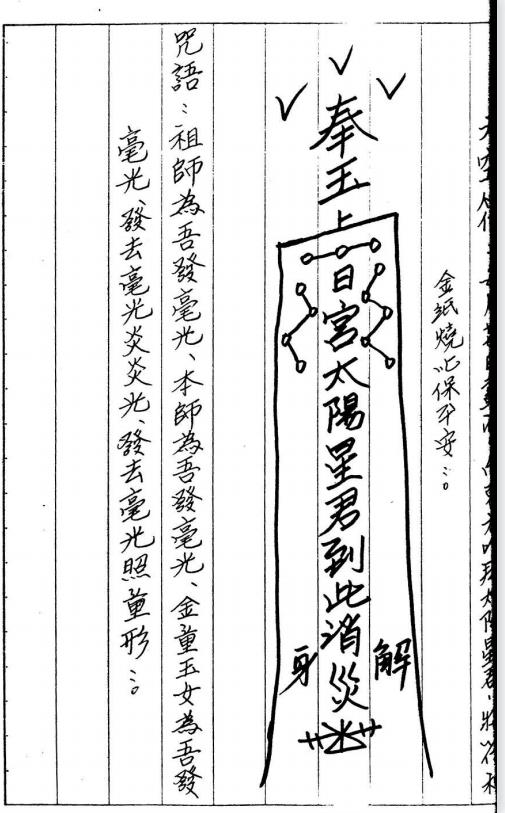 金紙燒化保平安
奉玉上日宮太陽星君到此消災
解
身
咒語：祖師為吾發毫光、本師為吾發毫光、金童玉女為吾發
毫光、發去毫光炎炎光、發去毫光照童形